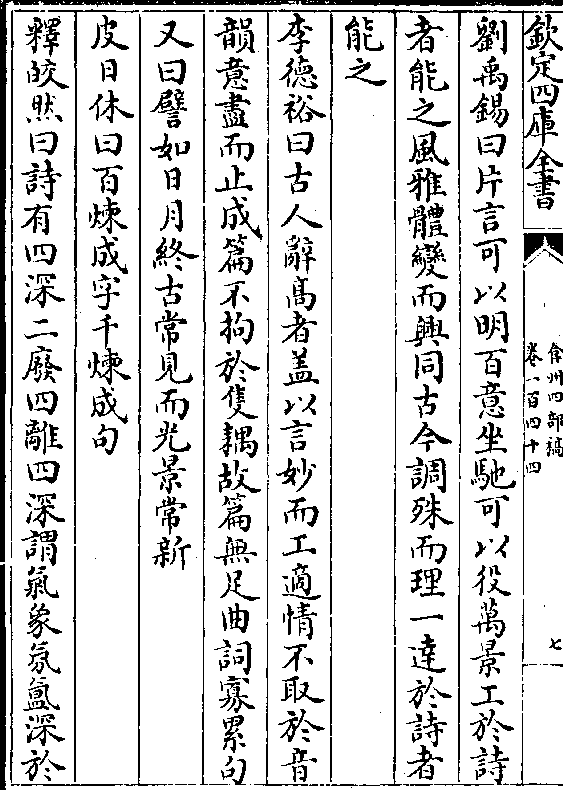 欽定四庫全書
弇州四部稿
卷一百四十四
七
劉禹錫曰片言可以明百意坐馳可以役萬景工於詩
者能之風雅體變而興同古今調殊而理一達於詩者
能之
李德裕曰古人辭髙者盖以言妙而工適情不取於音
韻意盡而止成篇不拘於隻耦故篇無足曲詞寡累句
又曰譬如日月終古常見而光景常新
皮日休曰百煉成字千煉成句
釋皎然曰詩有四深二廢四離四深謂氣象氛氲深於